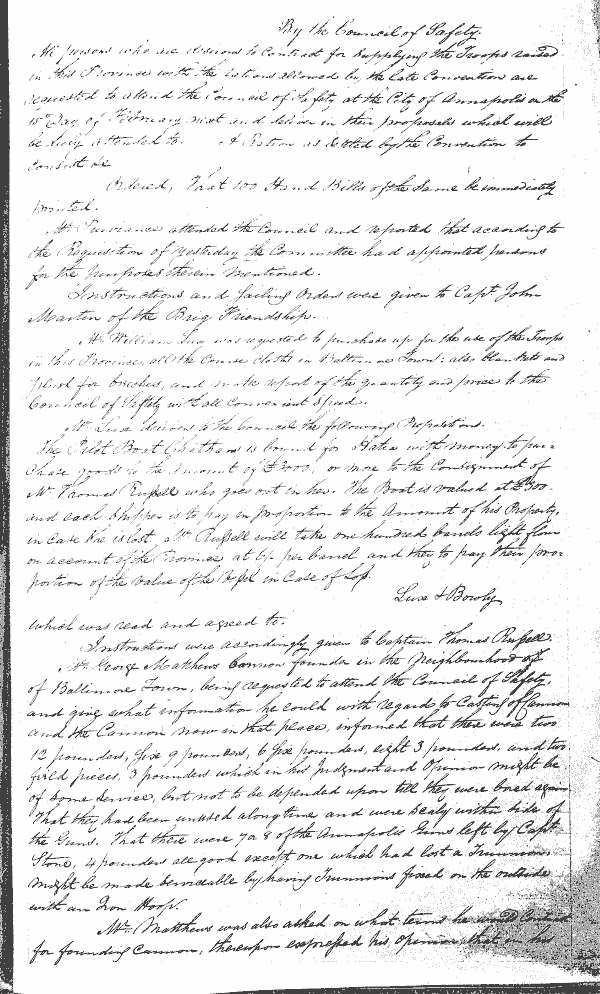 By the Council of Safety.
All persons who are desirous to Contract for supplying the Troops raised
in this Province with the Rations allowed by the late Convention are
requested to attend the Council of Safety at the City of Annapolis on the
15th Day of February next and deliver in their proposals which will
be duly attended to. A Ration as settled by the Convention to
consist &c
Ordered, That 100 Hand Bills of the Same be immediately
printed.
Mr. Purviance attended the Council and reported that according to
the Requisition of yesterday the Committee had appointed persons
for the purposes therein mentioned.
Instructions and Sailing Orders were given to Capt. John
Martin of the Brig Friendship.
Mr. William Lux was requested to purchase up for the use of the Troops
in this Province, all the Coarse Cloths in Baltimore Town: also blankets and
plush for breeches, and make report of the quantity and price to the
Council of Safety with all Convenient Speed.
Mr. Luxe delivers to the Council the following Propositions.
The Pilot Boat Chatham is bound for Statia with money to pur-
chase goods to the Amount of £3000, or more to the Consignment of
Mr. Thomas Russell who goes out in her. The Boat is valued at £300.
and each Shipper is to pay in proportion to the Amount of his Property,
in Case She is lost, Mr. Russell will take one hundred barrels light flour
on account of the Province at 6/. per barrel and they to pay their pro-
portion of the value of the Vessel in Case of Loss.
Luxe & Bowly
which was read and agreed to.
Instructions were accordingly given to Captain Thomas Russell.
Mr. George Matthews Cannon founder in the Neighbourhood of
of Baltimore Town, being requested to attend the Council of Safety,
and give what information he could with regard to Casting of Cannon
and the Cannon now in that place, informed that there were two
12 pounders, five 9 pounders, 6 six pounders, eight 3 pounders, and two
field pieces, 3 pounders which in his Judgment and Opinion might be
of some Service, but not to be depended upon till they were bored again
That they had been unused a long time and were Scaly within side of
the Guns. That there were 7 or 8 of the Annapolis Guns left by Capt.
Stone, 4 pounders all good except one which had lost a Trunnion,
might be made Serviceable by having Trunnions fixed on the outside
with an Iron Hoop.
Mr. Matthews was also asked on what terms he would Contract
for founding Cannon, thereupon expressed his Opinion that on his